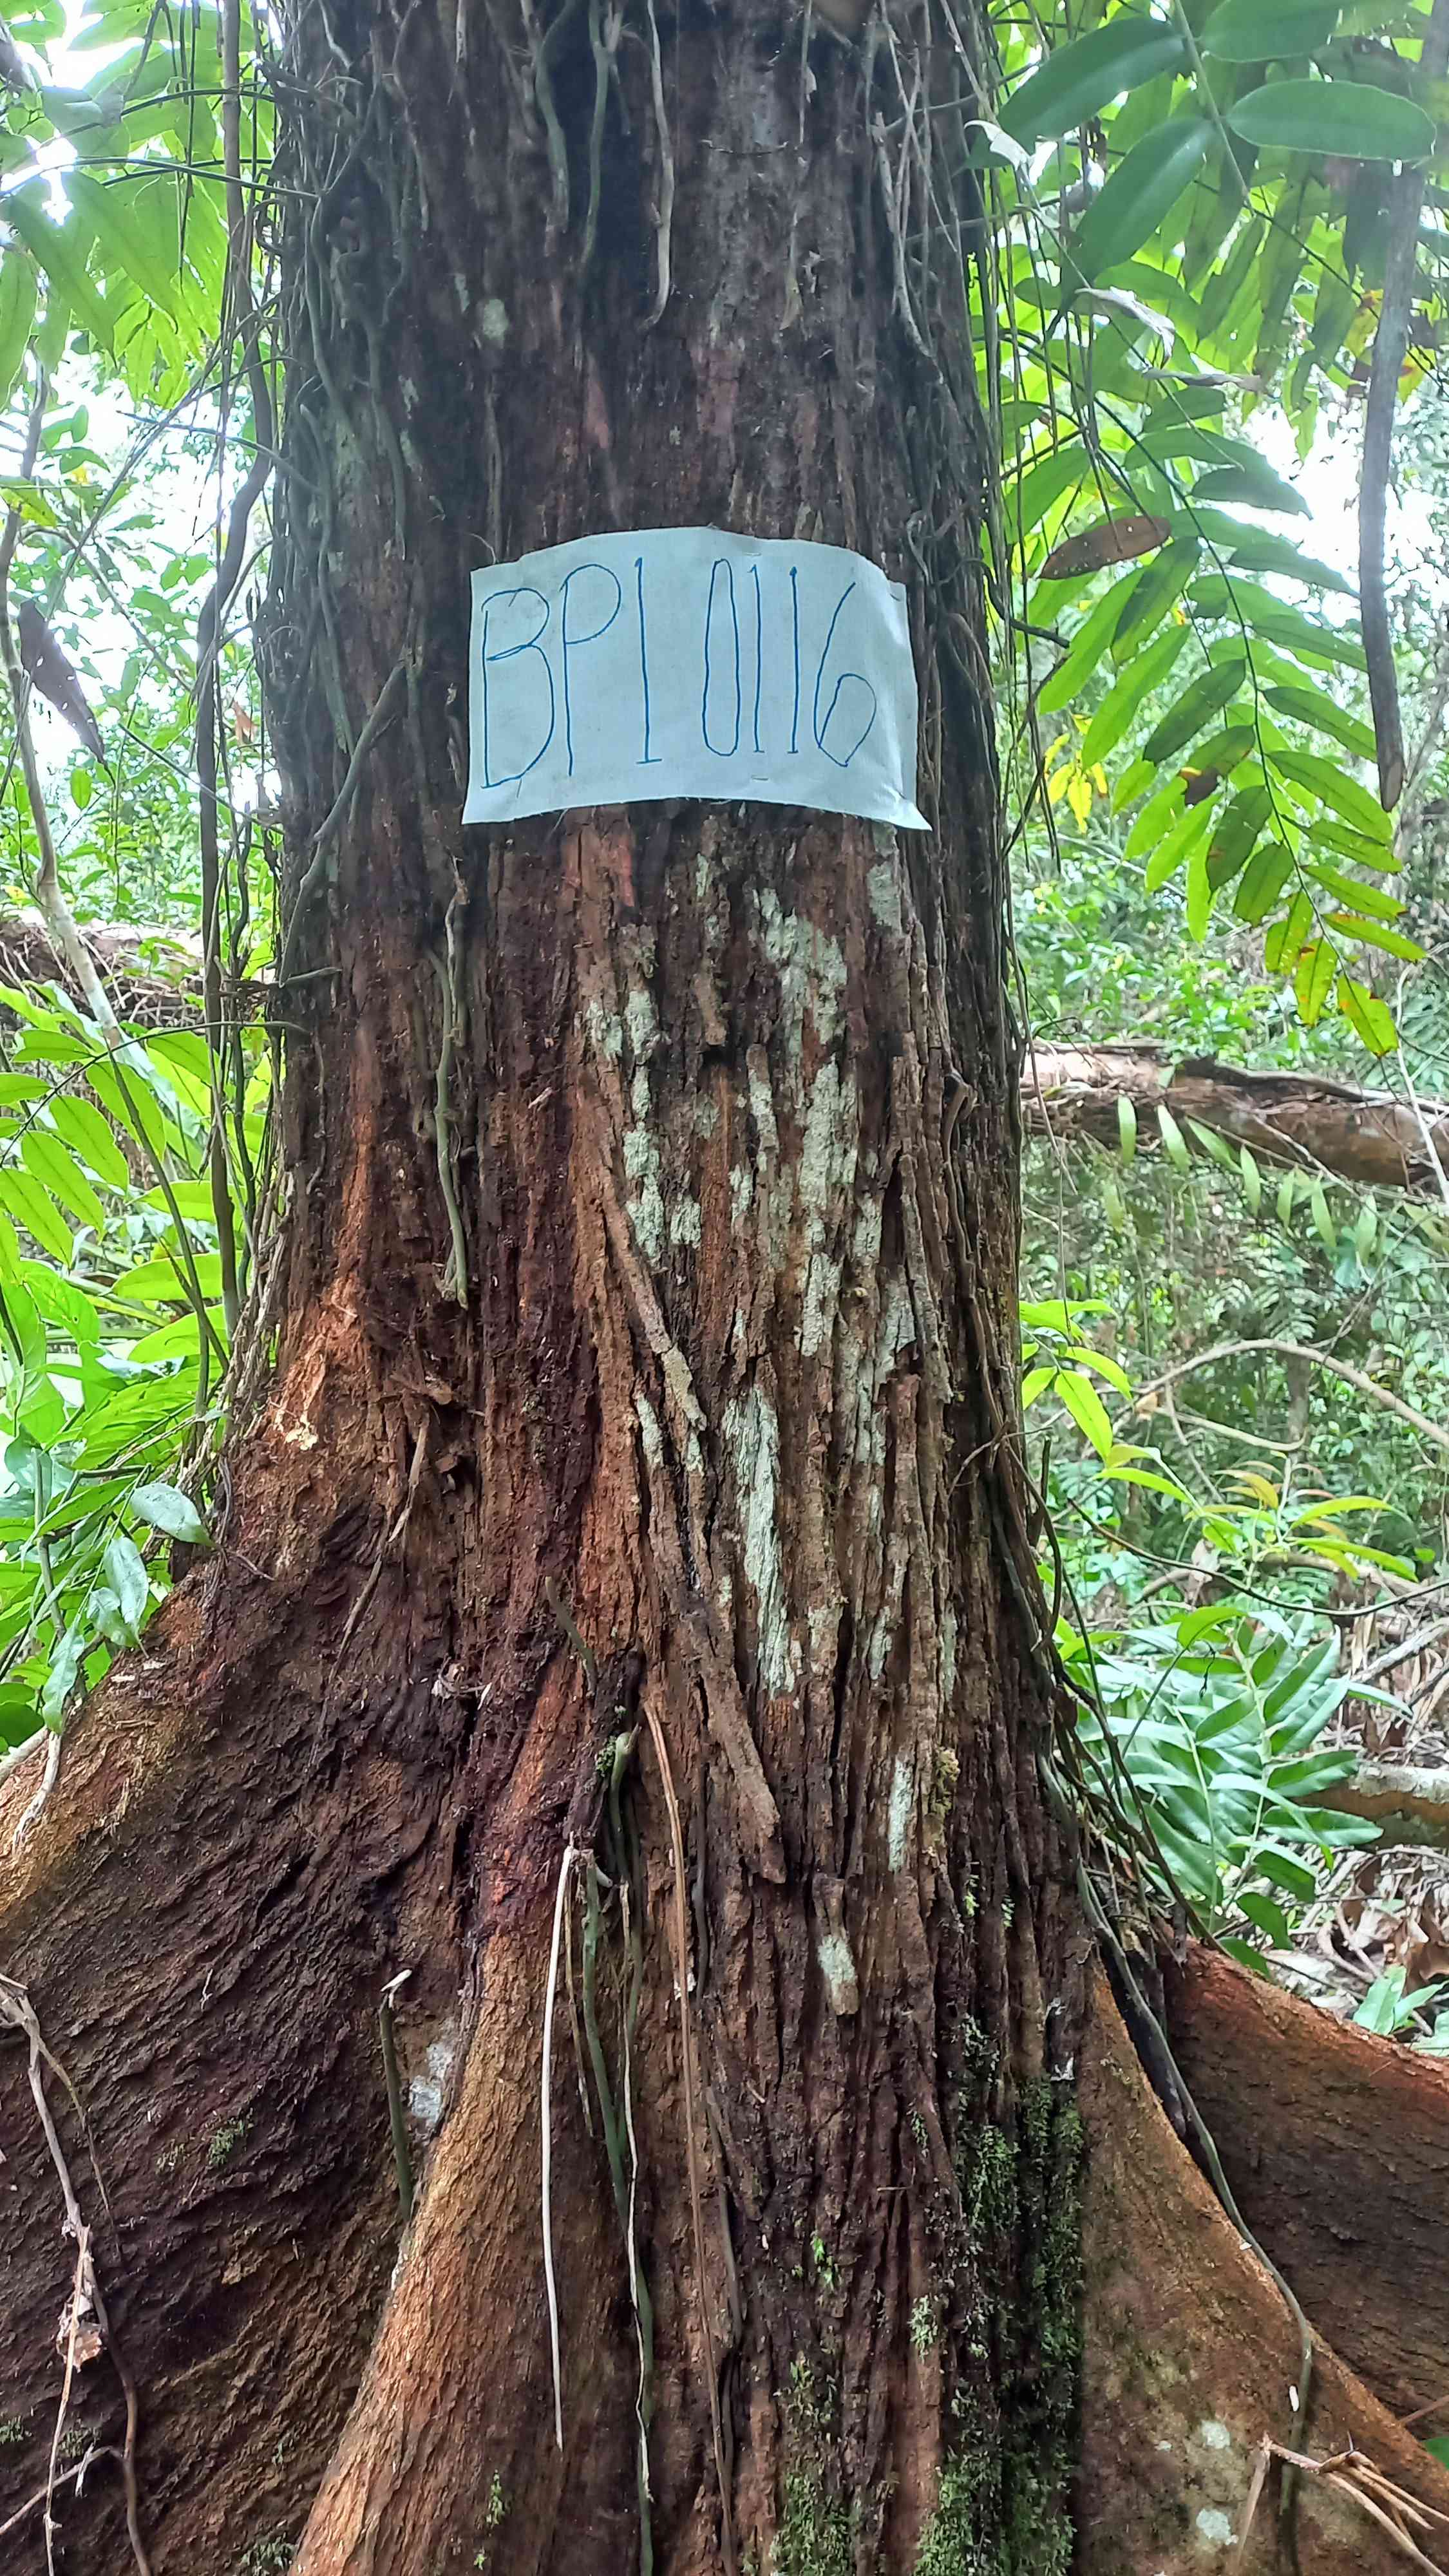 BP1 0116